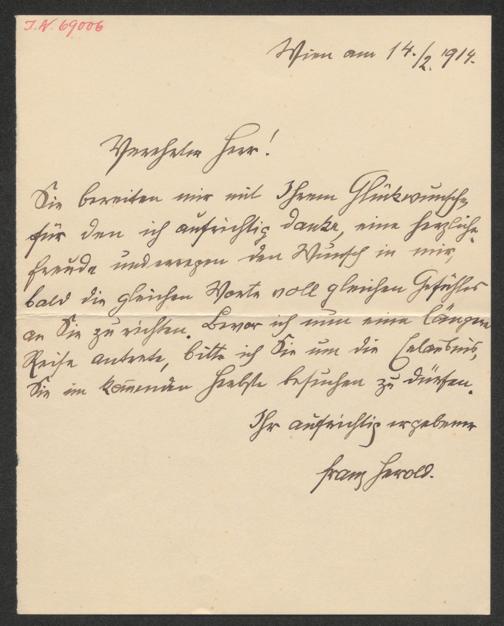 I.N. 69006
Wien am 14./2. 1914.
Verehrter Herr!
Sie bereiten mir mit Ihrem Glückwunsche,
für den ich aufrichtig danke, eine herzliche
Freude und erregen den Wunsch in mir,
bald die gleichen Worte voll gleichen Gefühles
an Sie zu richten. Bevor ich nun eine längere
Reise antrete, bitte ich Sie um die Erlaubnis,
Sie im kom̄enden Herbste besuchen zu dürfen.
Ihr aufrichtig ergebener
Franz Herold.